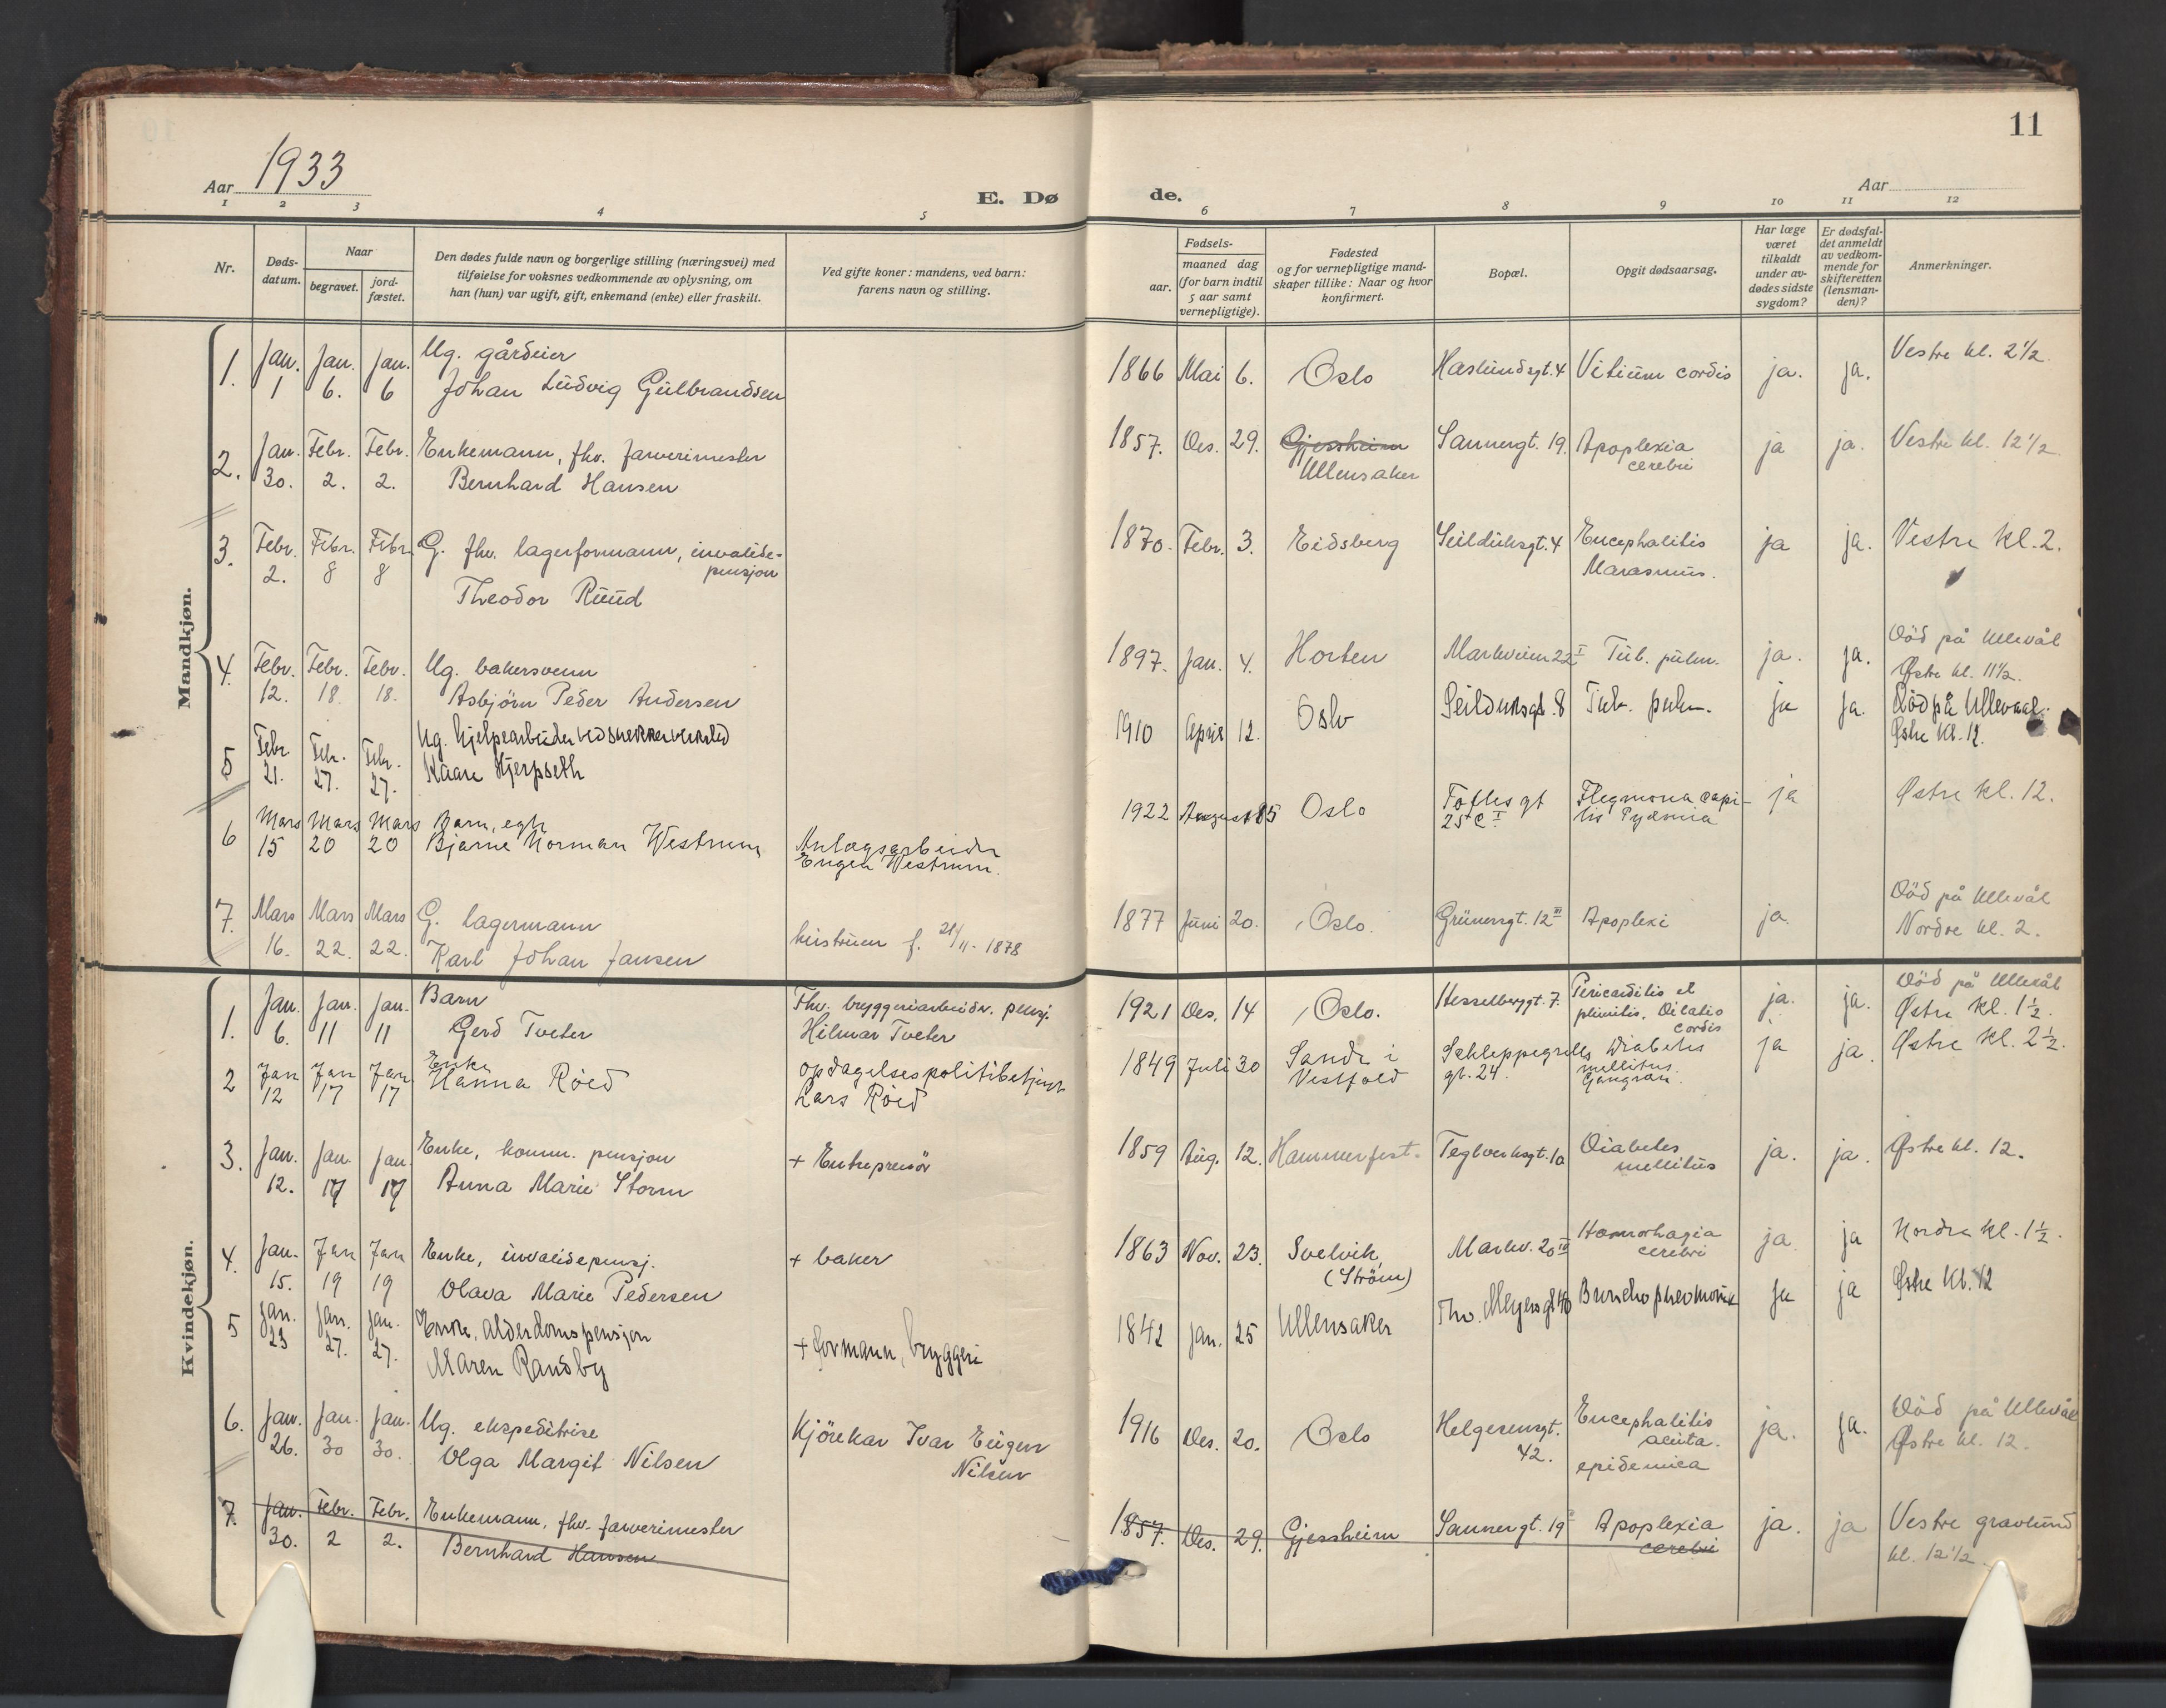 11
Aar 1933
E. Dø
de.
Aar
1 2 3 4 5 6 7 8 9 10 11 12
Nr.
Dødsdatum.
Naar
begravet.
jordfæstet.
Den dødes fulde navn og borgerlige stilling (næringsvei) med
tilføielse for voksnes vedkommende av oplysning, om
han (hun) var ugift, gift, enkemand (enke) eller fraskilt.
Ved gifte koner: mandens, ved barn:
farens navn og stilling.
Fødsels-
aar.
maaned dag
(for barn indtil
5 aar samt
vernepligtige).
Fødested
og for vernepligtige mand-
skaper tillike: Naar og hvor
konfirmert.
Bopæl.
Opgit dødsaarsag.
Har læge
været
tilkaldt
under av-
dødes sidste
sygdom?
Er dødsfal-
det anmeldt
av vedkom-
mende for
skifteretten
(lensman-
den)?
Anmerkninger.
Mandkjøn.
1. Jan. 1 Jan. 6. Jan. 6
Ug. gårdeier
Johan Ludvig Gulbrandsen
1866 Mai 6. Oslo Haslundsgt. 4 Vitium cordis ja. ja. Vestre kl. 2 1/2.
2. Jan. 30. Febr. 2. Febr. 2.
Enkemann, fhv. farverimester
Bernhard Hansen
1857. Des. 29. Gjessheim
Ullensaker
Sannergt. 19. Apoplexia
cerebri
ja ja. Vestre kl. 12 1/2
3. Febr. 2. Febr. 8 Febr. 8
G. fhv. lagerformann, invalide-
pensjon
Theodor Ruud
1870. Febr. 3. Eidsberg Seilduksgt. 4 Encephalitis
Marasmus.
ja ja. Vestre kl. 2.
4. Febr. 12. Febr. 18. Febr. 18.
Ug. bakersvenn
Asbjörn Peder Andersen
1897. Jan. 4. Horten Markveien 22 I Tub. pulm. ja. ja. Död på Ullevål
Østre kl. 11 1/2.
5 Febr. 21. Febr. 27. Febr. 27.
Ug. hjelpearbeider ved snekkerverksted
Kaare Hjerpseth
1910 April 12. Oslo Seilduksgt. 8 Tub. pulm. ja ja. Död på Ullevaal.
Østre kl. 12.
6 Mars 15 Mars 20 Mars 20
Barn, egte
Bjarne Norman Westrum
Anlægsarbeider
Eugen Westrum.
1922 August 25 Oslo Toftes gt
25 c I
Flegmona capi-
tis Pyæmia
ja Østre kl. 12.
7. Mars 16. Mars 22. Mars 22.
G. lagermann
Karl Johan Jansen
hustruen f. 21/11-1878
1877 Juni 20. Oslo. Grünersgt. 12 III Apoplexi ja. Död på Ullevål
Nordre kl. 2.
Kvindekjøn.
1. Jan. 6. Jan. 11 Jan. 11
Barn
Gerd Tveter
Fhv. bryggeriarbeider. pensj.
Hilmar Tveter
1921 Des. 14 Oslo. Hesselberggt. 7. Pericarditis et
plevritis. Dilatio
cordis
ja. ja. Död på Ullevål
Østre kl. 1 1/2.
2 Jan 12 Jan 17 Jan 17
Enke
Hanna Röed
opdagelsespolitibetjent
Lars Röed
1849 Juli 30 Sande i
Vestfold
Schleppegrells
gt. 24.
Diabetes
mellitus.
Gangrän.
ja ja. Østre kl. 2 1/2.
3. Jan. 12. Jan. 17 Jan. 17
Enke, komm. pensjon
Anna Marie Storm
+ Entreprenör
1859 Aug. 12. Hammerfest. Teglverksgt. 10 Diabetes
mellitus
ja. ja. Østre kl. 12.
4. Jan. 15. Jan 19 Jan 19
Enke, invalidepensj.
Olava Marie Pedersen
+ baker
1863 Nov. 23. Svelvik
(Ström)
Markv. 20 IV Hæmorhagia
cerebri
ja ja Nordre kl. 1 1/2.
5 Jan. 23 Jan. 27. Jan. 27.
Enke, alderdomspensjon
Maren Randby
+ formann, bryggeri
1842 Jan. 25 Ullensaker Thv. Meyersgt 40 Bronchopneumonie ja ja Østre kl. 12
6. Jan. 26. Jan. 30 Jan. 30.
Ug. ekspeditrise
Olga Margit Nilsen
Kjörekar Ivar Eugen
Nilsen
1916 Des. 20. Oslo Helgesensgt.
42.
Encephalitis
acuta.
epidemica
ja. ja. Död på Ullevål
Østre kl. 12.
7. Jan. 30. Febr. 2 Febr. 2.
Enkemann, fhv. farverimester
Bernhard Hansen
1857. Des. 29. Gjessheim Sannergt. 19 Apoplexia
cerebri
ja. ja Vestre gravlund
kl. 12 1/2.